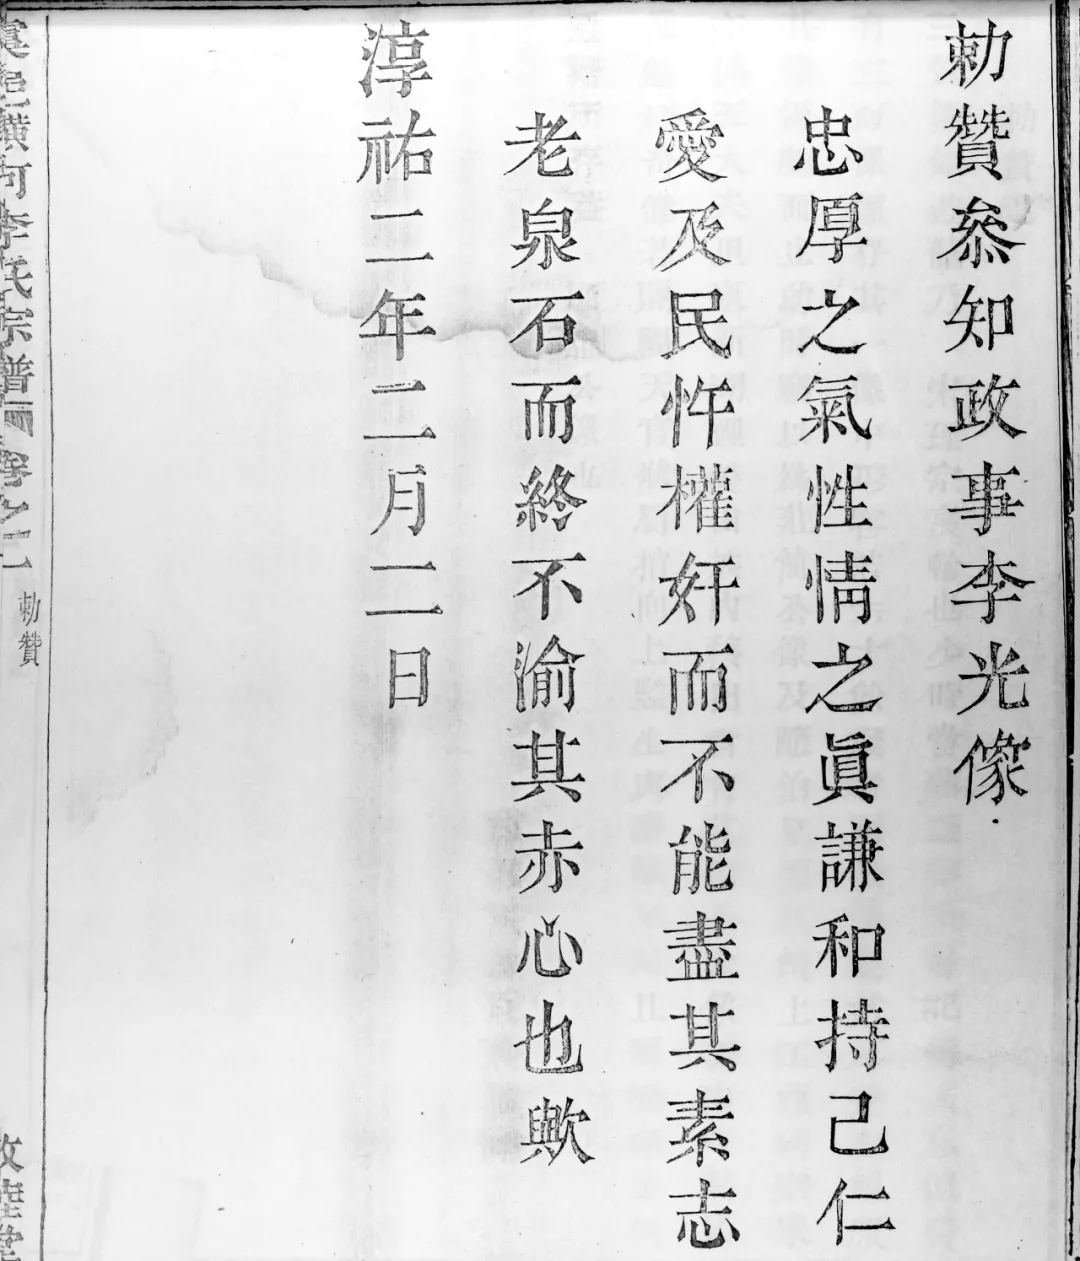 勅贊叅知政事李光像
忠厚之氣性情之眞謙和持己仁
愛及民忤權奸而不能盡其素志
老泉石而終不渝其赤心也歟
淳祐二年二月二日
橫河李氏宗譜 卷之二
勅贊